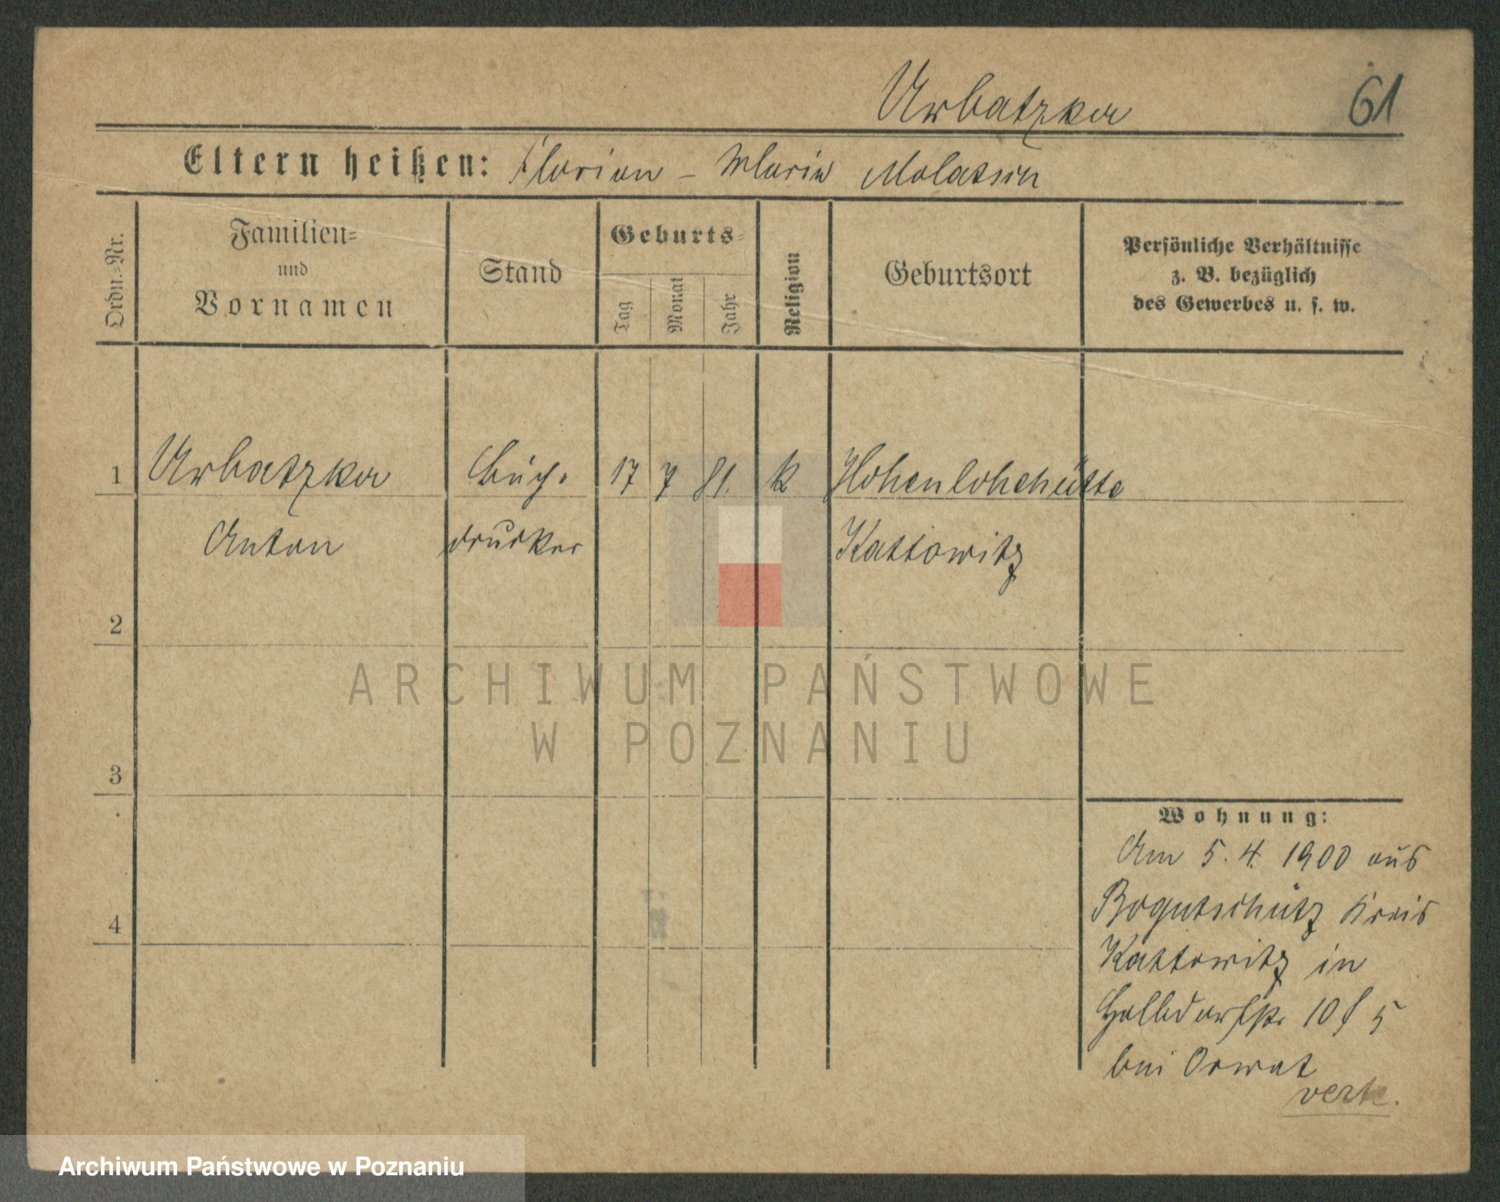 Urbatzka 61
Eltern heißen: Florian – Maria Molatsin
Ordn.=Nr.
Familien=
und
Vornamen
Stand
Geburts=
Tag
Monat
Jahr
Religion
Geburtsort
Persönliche Verhältnisse
z. B. bezüglich
des Gewerbes u. s. w.
1 Urbatzka Buch= 17 7 81. k Hohenlohehütte
Anton drucker Kattowitz
2
ARCHIWUM PAŃSTWOWE
W POZNANIU
3
Wohnung:
Am 5. 4. 1900 aus
Bogutschütz Kreis
4
Kattowitz in
Halbdorfstr 10 5
bei Orwat
verte.
Archiwum Państwowe w Poznaniu